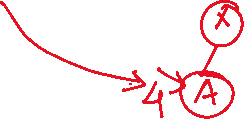 X
4 A